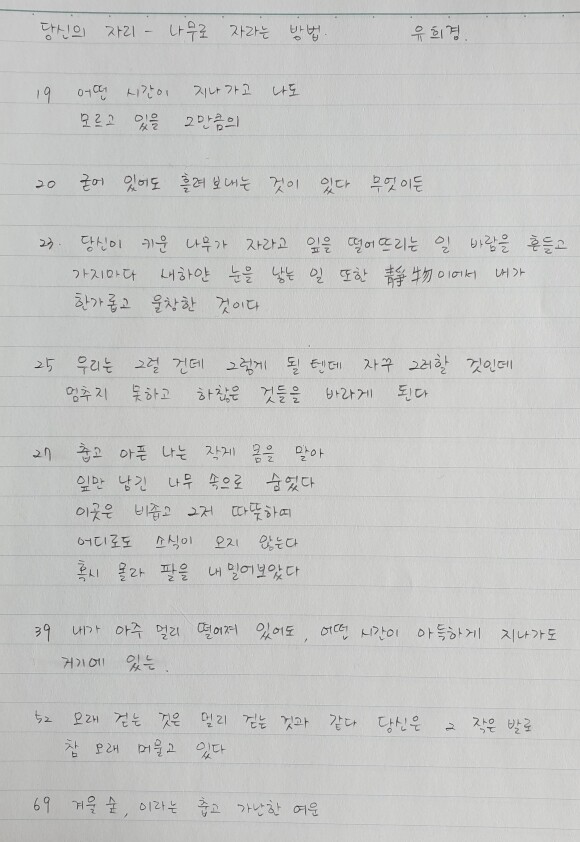 당신의 자리 - 나무로 자라는 방법. 유희경.
19 어떤 시간이 지나가고 나도
모르고 있을 그만큼의
20 굳어 있어도 흘려보내는 것이 있다 무엇이든
23. 당신이 키운 나무가 자라고 잎을 떨어뜨리는 일 바람을 흔들고
가지마다 새하얀 눈을 낳는 일 또한 靜物이어서 내가
한가롭고 울창한 것이다
25 우리는 그럴 건데 그렇게 될 텐데 자꾸 그러할 것인데
멈추지 못하고 하찮은 것들을 바라게 된다
27 춥고 아픈 나는 작게 몸을 말아
잎만 남긴 나무 속으로 숨었다
이곳은 비좁고 그저 따뜻하여
어디로도 소식이 오지 않는다
혹시 몰라 팔을 내밀어보았다
39 내가 아주 멀리 떨어져 있어도, 어떤 시간이 아득하게 지나가도
거기에 있는.
52 오래 걷는 것은 멀리 걷는 것과 같다 당신은 그 작은 발로
참 오래 머물고 있다
69 겨울 숲, 이라는 춥고 가난한 여운